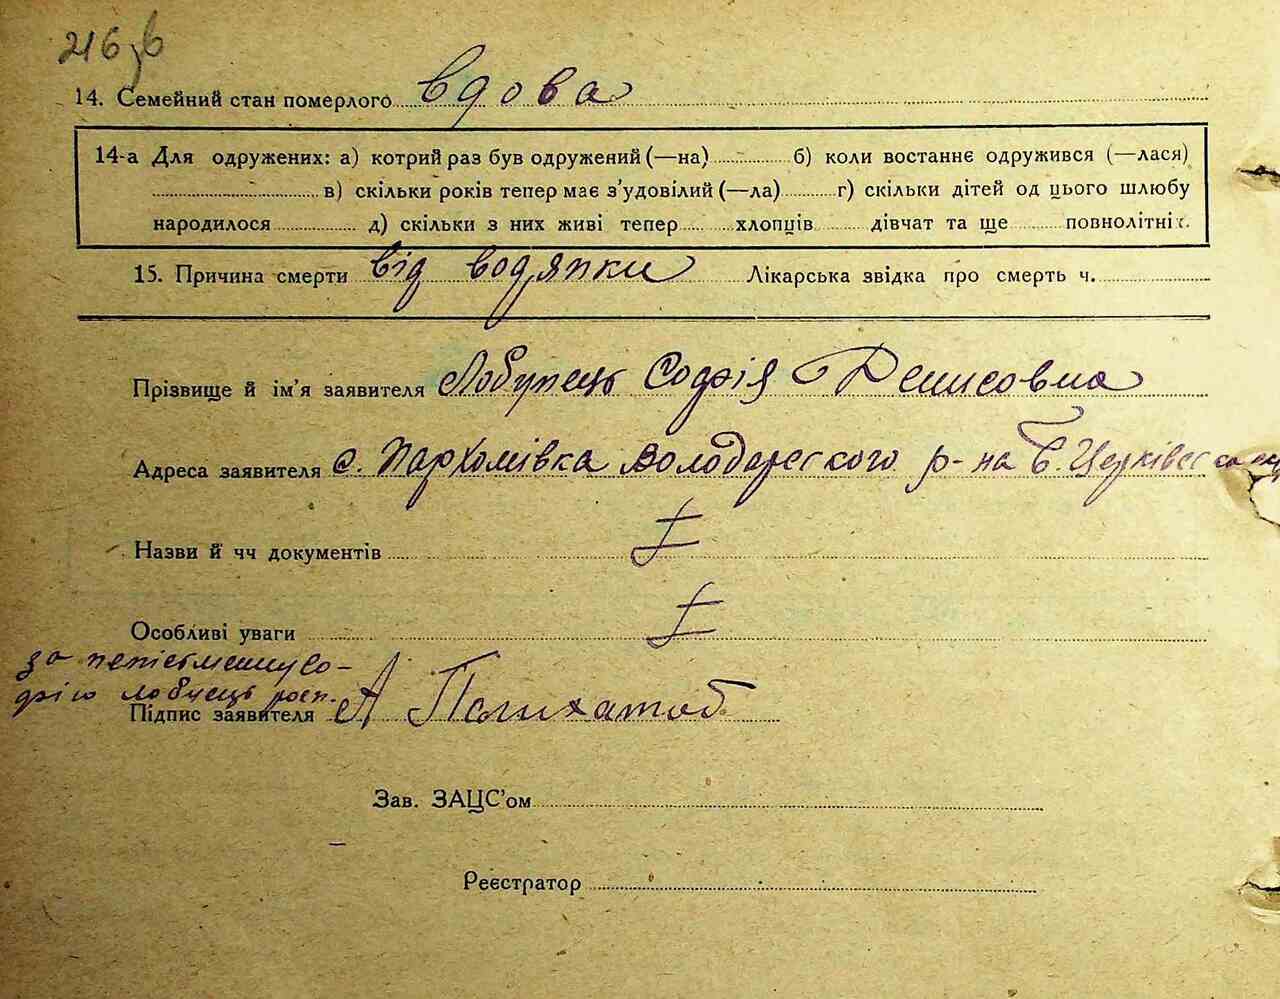 216 зв
14. Семейний стан померлого вдова
14-а Для одружених: а) котрий раз був одружений (—на) б) коли востаннє одружився (—лася)
в) скільки років тепер має з'удовілий (—ла) г) скільки дітей од цього шлюбу
народилося д) скільки з них живі тепер хлопців дівчат та ще повнолітніх.
15. Причина смерти від водянки Лікарська звідка про смерть ч.
Прізвище й ім'я заявителя Лобунець Софія Денисовна
Адреса заявителя с. Пархомівка Володареского р-на Б. Церківес
Назви й чч документів
Особливі уваги
за неписьменну Со-
фію Лобунець росп.
Підпис заявителя А
Зав. ЗАЦС'ом
Реєстратор